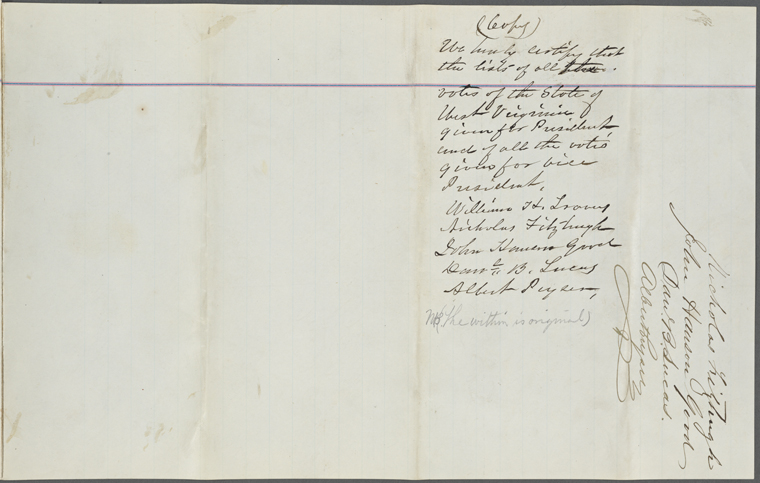 (Copy)
We hereby certify that
the lists of all the
votes of the State of
West Virginia
given for President
and of all the votes
given for vice
President,
William H. Travers
Nicholas Fitzhugh
John Hanson Good
Danl. B. Lucas
Albert Peyser,
NB. The within is original)
Nicholas Fitzhugh
John Hanson Good
Danl. B. Lucas.